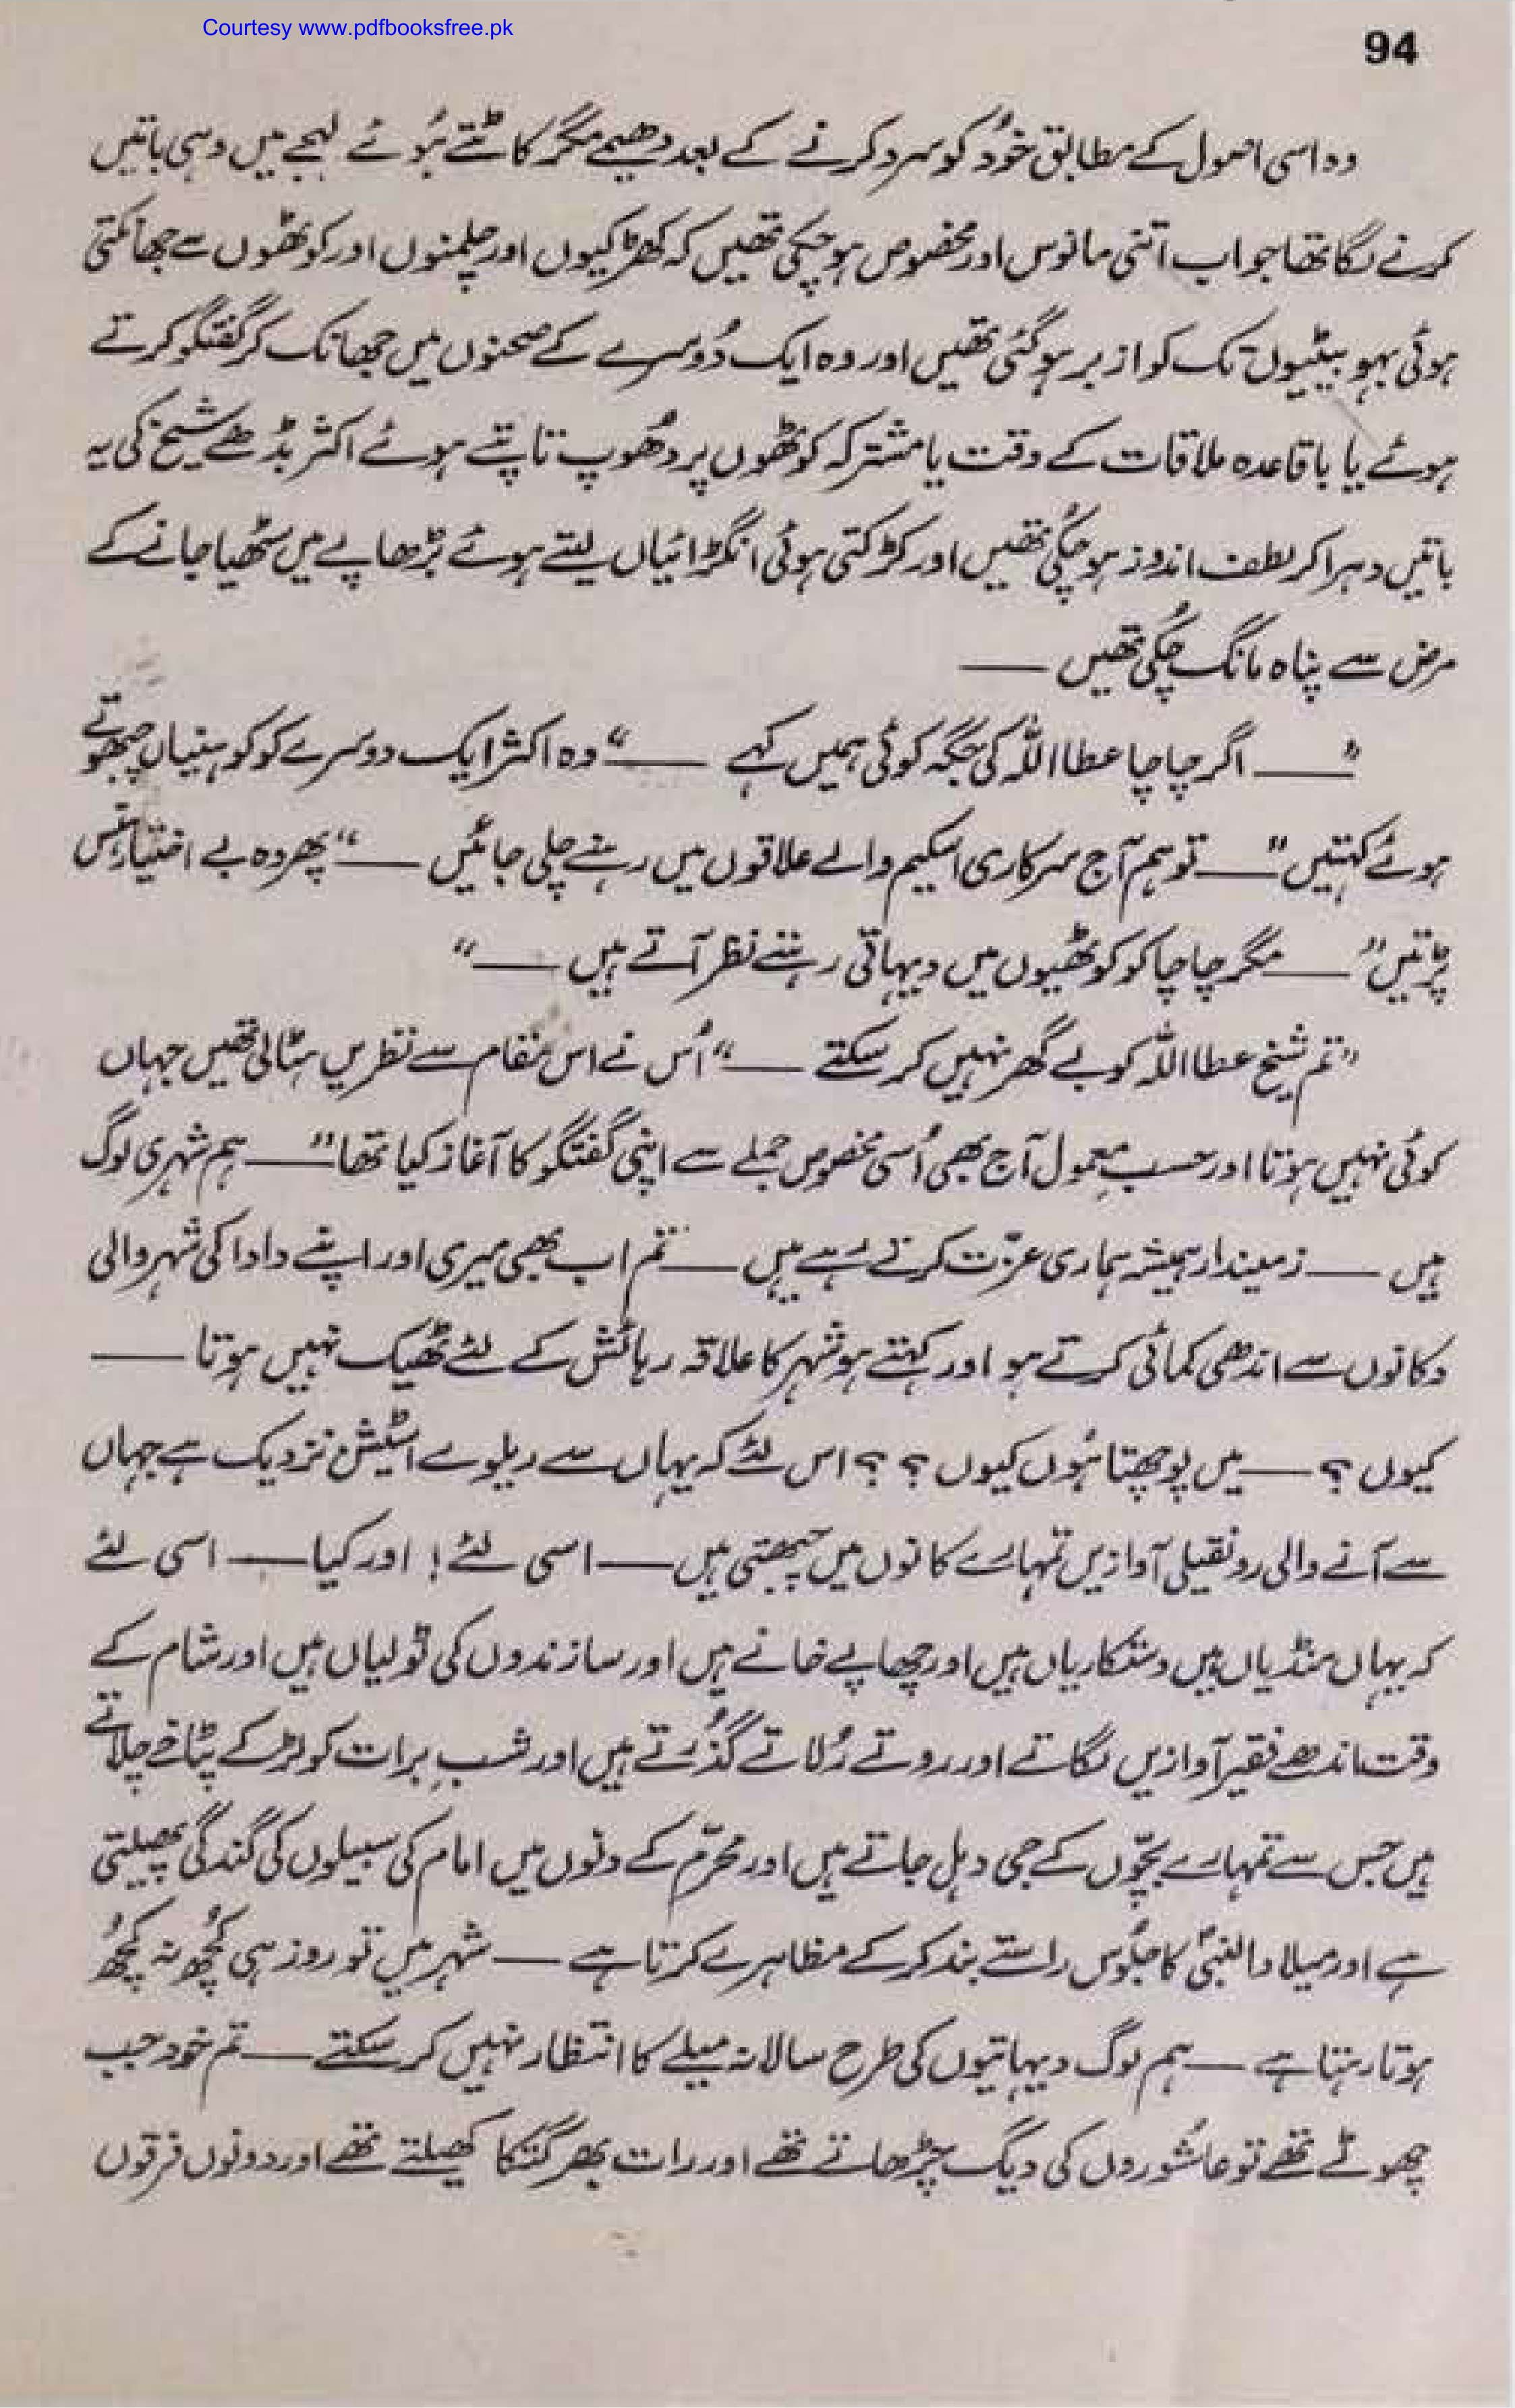 Courtesy www.pdfbooksfree.pk
94
وہ اسی اصول کے مطابق خود کو سرد کرنے کے بعد دھیمے مگر کاٹتے ہُوئے لہجے میں وہی باتیں
کرنے لگا تھا جو اب اتنی مانوس اور مخصوص ہو چکی تھیں کہ کھڑکیوں اور چلمنوں اور کوٹھوں سے جھانکتی
ہوئی بہو بیٹیوں تک کو ازبر ہو گئی تھیں اور وہ ایک دُوسرے کے صحنوں میں جھانک کر گفتگو کرتے
ہوئے یا باقاعدہ ملاقات کے وقت یا مشترکہ کوٹھوں پر دھُوپ تاپتے ہوئے اکثر بڈھے شیخ کی یہ
باتیں دہرا کر لطف اندوز ہو چکُی تھیں اور کڑکتی ہوئی انگڑائیاں لیتے ہوئے بڑھاپے میں سٹھیا جانے کے
مرض سے پناہ مانگ چُکی تھیں ——
”—— اگر چاچا عطا اللہ کی جگہ کوئی ہمیں کہے ——“ وہ اکثر ایک دوسرے کو کوہنیاں چبھوتے
ہوئے کہتیں ”—— تو ہم آج سرکاری اسکیم والے علاقوں میں رہنے چلی جائیں ——“ پھر وہ بے اختیار ہنس
پڑتیں ”—— مگر چاچا کو کوٹھیوں میں دیہاتی رہتے نظر آتے ہیں ——“
”تم شیخ عطا اللہ کو بے گھر نہیں کر سکتے ——“ اُس نے اس مقام سے نظریں ہٹا لی تھیں جہاں
کوئی نہیں ہوتا اور حسبِ معمول آج بھی اُسی مخصوص جملے سے اپنی گفتگو کا آغاز کیا تھا ”—— ہم شہری لوگ
ہیں —— زمیندار ہمیشہ ہماری عزّت کرتے رہے ہیں —— تم اب بھی میری اور اپنے دادا کی شہر والی
دکانوں سے اندھی کمائی کرتے ہو اور کہتے ہو شہر کا علاقہ رہائش کے لئے ٹھیک نہیں ہوتا ——
کیوں ؟ —— میں پوچھتا ہُوں کیوں ؟ ؟ اس لئے کہ یہاں سے ریلوے اسٹیشن نزدیک ہے جہاں
سے آنے والی رونقیلی آوازیں تمہارے کانوں میں چبھتی ہیں —— اسی لئے ! اور کیا —— اسی لئے
کہ یہاں منڈیاں ہیں دستکاریاں ہیں اور چھاپے خانے ہیں اور سازندوں کی ٹولیاں ہیں اور شام کے
وقت اندھے فقیر آوازیں لگاتے اور روتے رُلاتے گذُرتے ہیں اور شبِ برات کو لڑکے پٹاخے چلاتے
ہیں جس سے تمہارے بچّوں کے جی دہل جاتے ہیں اور محرّم کے دنوں میں امام کی سبیلوں کی گندگی پھیلتی
ہے اور میلاد النبیؐ کا جلُوس راستے بند کر کے مظاہرے کرتا ہے —— شہر میں تو روز ہی کچُھ نہ کچُھ
ہوتا رہتا ہے —— ہم لوگ دیہاتیوں کی طرح سالانہ میلے کا انتظار نہیں کر سکتے —— تم خود جب
چھوٹے تھے تو عاشُوروں کی دیگ چڑھاتے تھے اور رات بھر گتکا کھیلتے تھے اور دونوں فرقوں